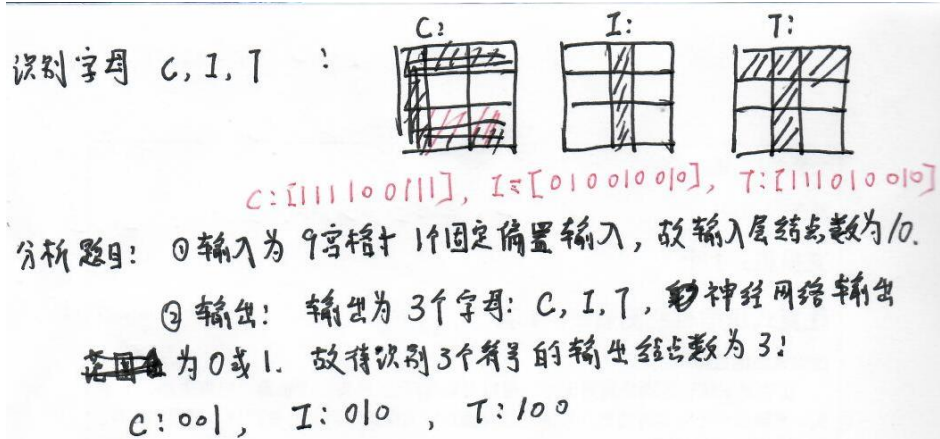 C: I: T:
识别字母 C, I, T :
C:[111100111], I=[010010010], T:[111010010]
分析题目: ①输入为 9宫格+1个固定偏置输入,故输入层结点数为10.
②输出: 输出为3个字母: C, I, T, 神经网络输出
为0或1. 故待识别3个符号的输出结点数为3:
C:001, I:010, T:100